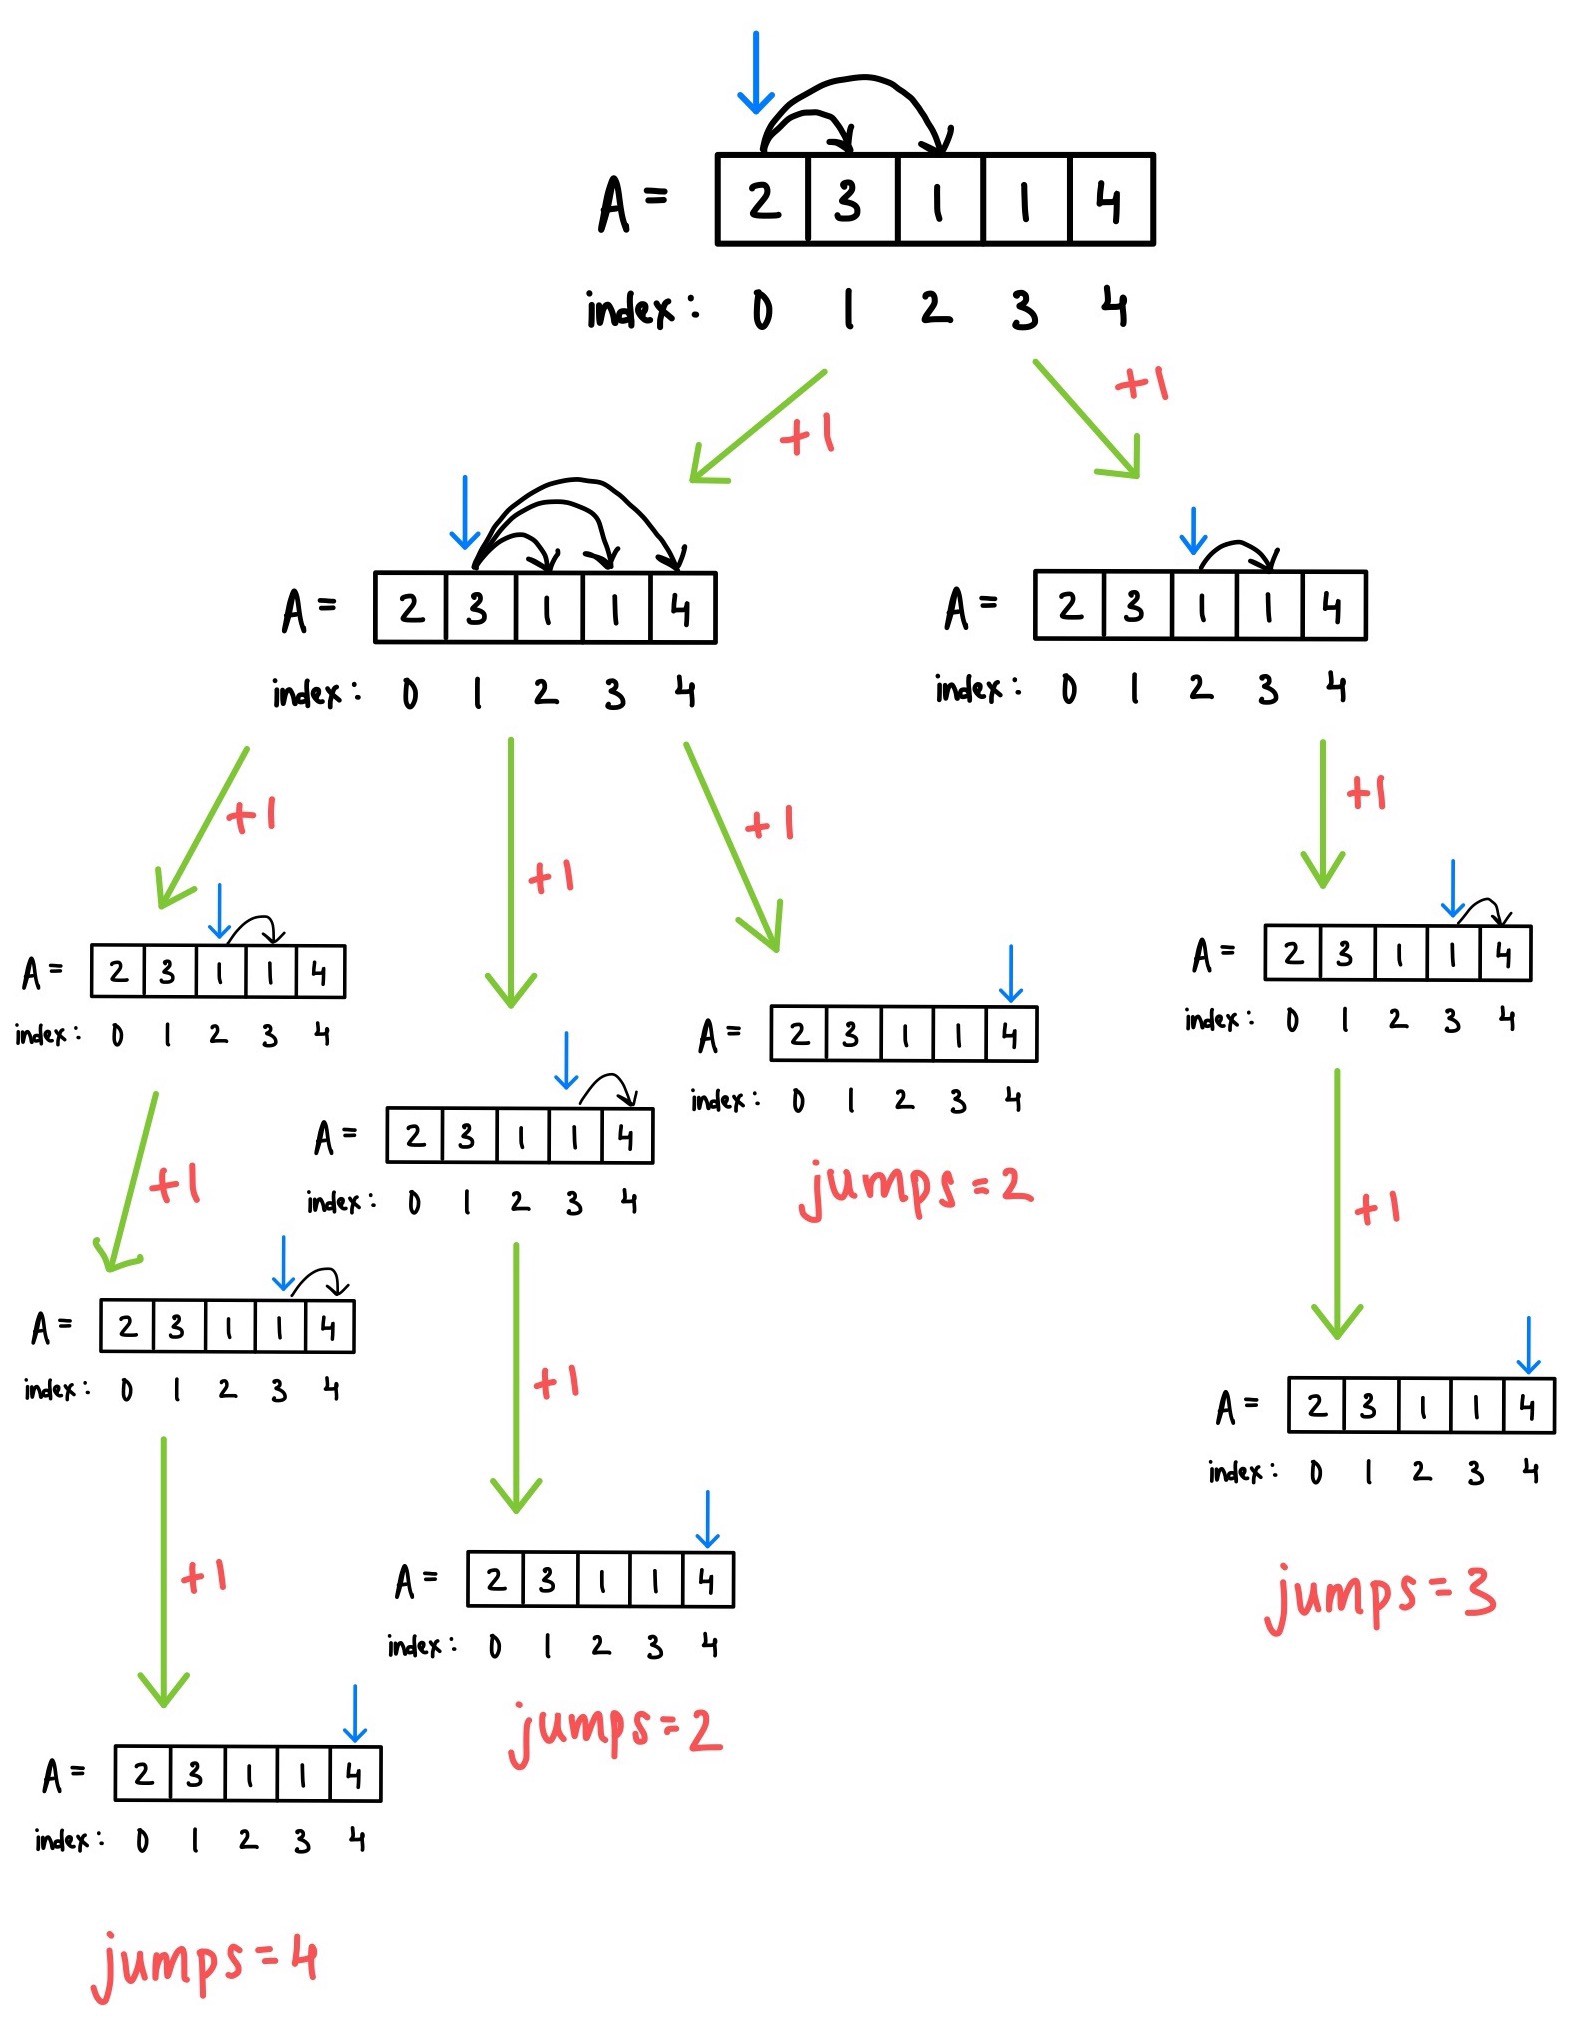 A = 2 3 1 1 4
index: 0 1 2 3 4
+1
+1
A = 2 3 1 1 4
index: 0 1 2 3 4
A = 2 3 1 1 4
index: 0 1 2 3 4
+1
+1
+1
+1
A = 2 3 1 1 4
index: 0 1 2 3 4
A = 2 3 1 1 4
index: 0 1 2 3 4
A = 2 3 1 1 4
index: 0 1 2 3 4
jumps=2
A = 2 3 1 1 4
index: 0 1 2 3 4
+1
+1
+1
A = 2 3 1 1 4
index: 0 1 2 3 4
A = 2 3 1 1 4
index: 0 1 2 3 4
jumps=3
+1
A = 2 3 1 1 4
index: 0 1 2 3 4
jumps=2
A = 2 3 1 1 4
index: 0 1 2 3 4
jumps=4